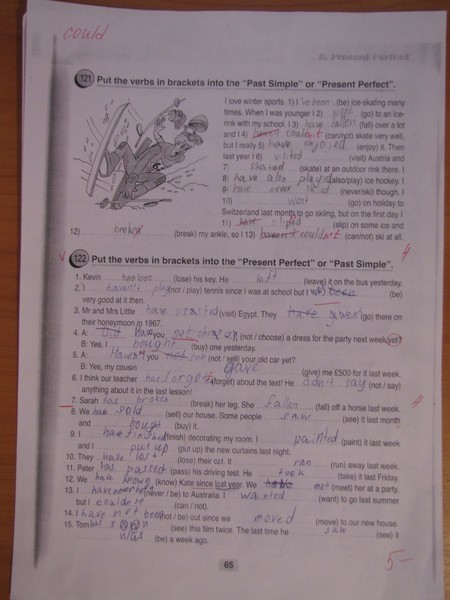 could
5. Present Perfect
121 Put the verbs in brackets into the "Past Simple" or "Present Perfect".
I love winter sports. 1) I've been (be) ice-skating many
times. When I was younger I 2) (go) to an ice-
rink with my school. I 3) have fallen (fall) over a lot
and I 4) couldn't (can/not) skate very well,
but I really 5) have enjoied (enjoy) it. Then
last year I 6) visited (visit) Austria and
7) skated (skate) at an outdoor rink there. I
8) have also played (also/play) ice hockey. I
9) have never (never/ski) though. I
10) went (go) on holiday to
Switzerland last month to go skiing, but on the first day I
11) have sliped (slip) on some ice and
12) (break) my ankle, so I 13) haven't couldn't (can/not) ski at all.
122 Put the verbs in brackets into the "Present Perfect" or "Past Simple".
1. Kevin has lost (lose) his key. He left (leave) it on the bus yesterday.
2. I haven't play (not / play) tennis since I was at school but I (be)
very good at it then.
3. Mr and Mrs Little have visited (visit) Egypt. They have (go) there on
their honeymoon in 1967.
4. A: Did have you not chosen (not / choose) a dress for the party next week (yet)?
B: Yes, I bought (buy) one yesterday.
5. A: Haven't you not (not / sell) your old car yet?
B: Yes, my cousin gave (give) me £500 for it last week.
6. I think our teacher has forgot (forget) about the test! He didn't say (not / say)
anything about it in the last lesson!
7. Sarah has broken (break) her leg. She fallen (fall) off a horse last week.
8. We sold (sell) our house. Some people saw (see) it last month
and bought (buy) it.
9. I have finished (finish) decorating my room. I painted (paint) it last week
and I put up (put up) the new curtains last night.
10. They have lost (lose) their cat. It ran (run) away last week.
11. Peter has passed (pass) his driving test. He took (take) it last Friday.
12. We have known (know) Kate since last year. We met (meet) her at a party.
13. I have never been (never / be) to Australia. I wanted (want) to go last summer
but I (can / not).
14. I have not been (not / be) out since we moved (move) to our new house.
15. Tom has seen (see) this film twice. The last time he saw (see) it
was (be) a week ago.
65
5-